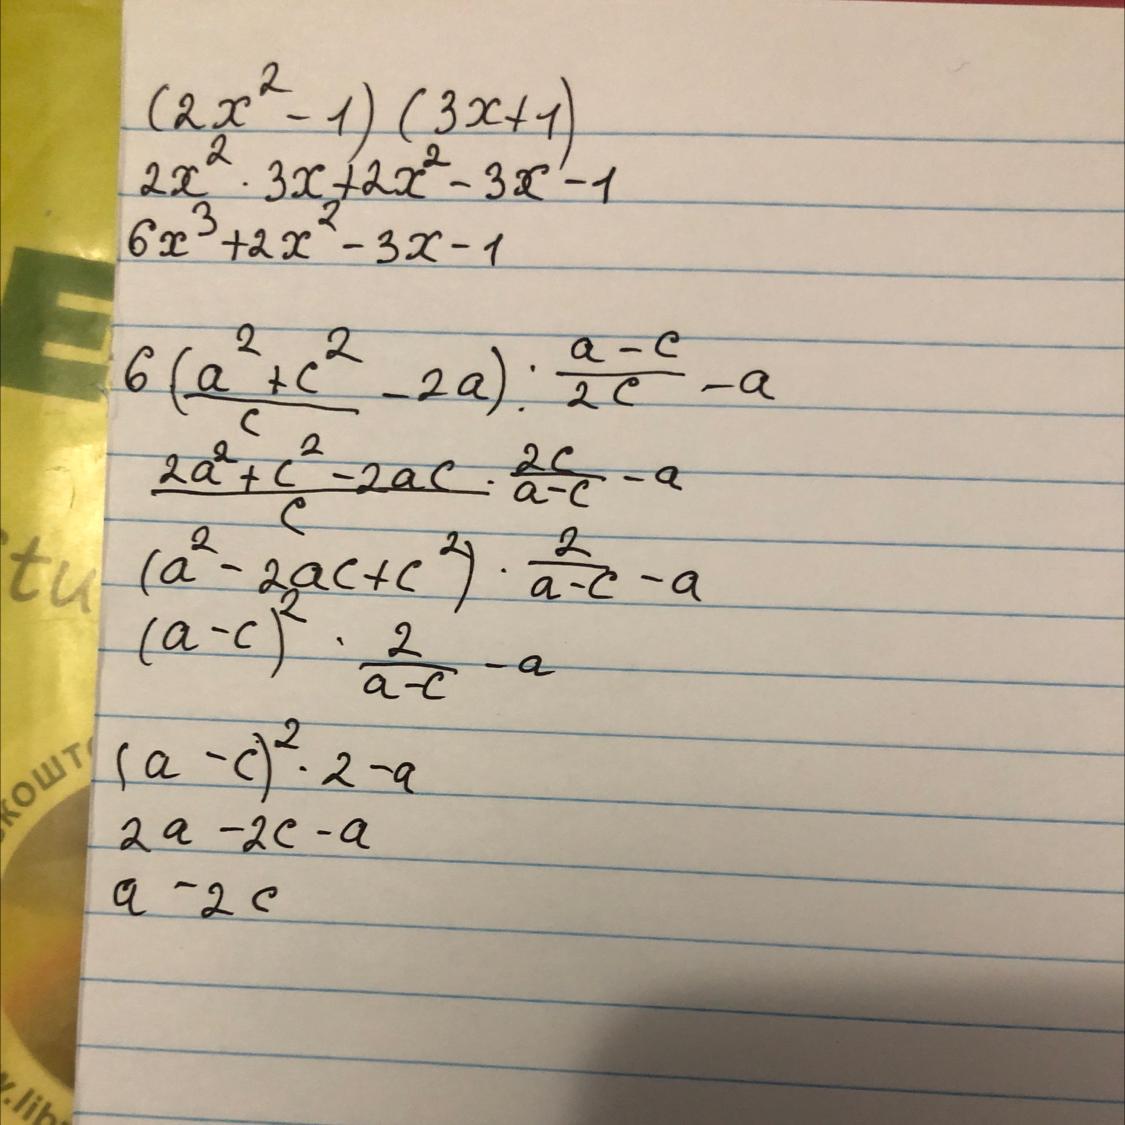 (2x² - 1) (3x+1)
2x² · 3x+2x² - 3x - 1
6x³ +2x² - 3x - 1
6 (\frac{a² + c²}{c} - 2a) : \frac{a - c}{2c} - a
\frac{2a² + c² - 2ac}{c} · \frac{2c}{a-c} - a
(a² - 2ac + c²) · \frac{2}{a-c} - a
(a - c)² · \frac{2}{a-c} - a
(a - c)² · 2 - a
2a - 2c - a
a - 2c
E
tu
КОШТО
w.lib